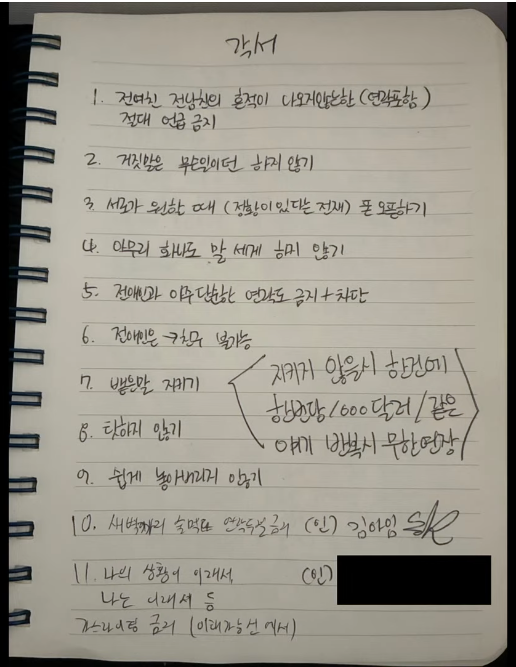 각서
1. 전여친 전남친의 흔적이 나오지않는한 (연락포함)
절대 언급 금지
2. 거짓말은 무슨일이던 하지 않기
3. 서로가 원할 때 (정황이 있다는 전재) 폰 오픈하기
4. 아무리 화나도 말 세게 하지 않기
5. 전애인과 아주 단순한 연락도 금지 + 차단
6. 전애인은 → 친구 불가능
7. 뱉은말 지키기
8. 탓하지 않기
지키지 않을시 한건에
한번당 1000달러 / 같은
얘기 반복시 무한연장
9. 쉽게 놓아버리지 않기
10. 새벽까지 술먹고 연락두절 금지 (인) 김아임
11. 나의 상황이 이래서 (인)
나는 이래서 등
가스라이팅 금지 (이해가능선에서)